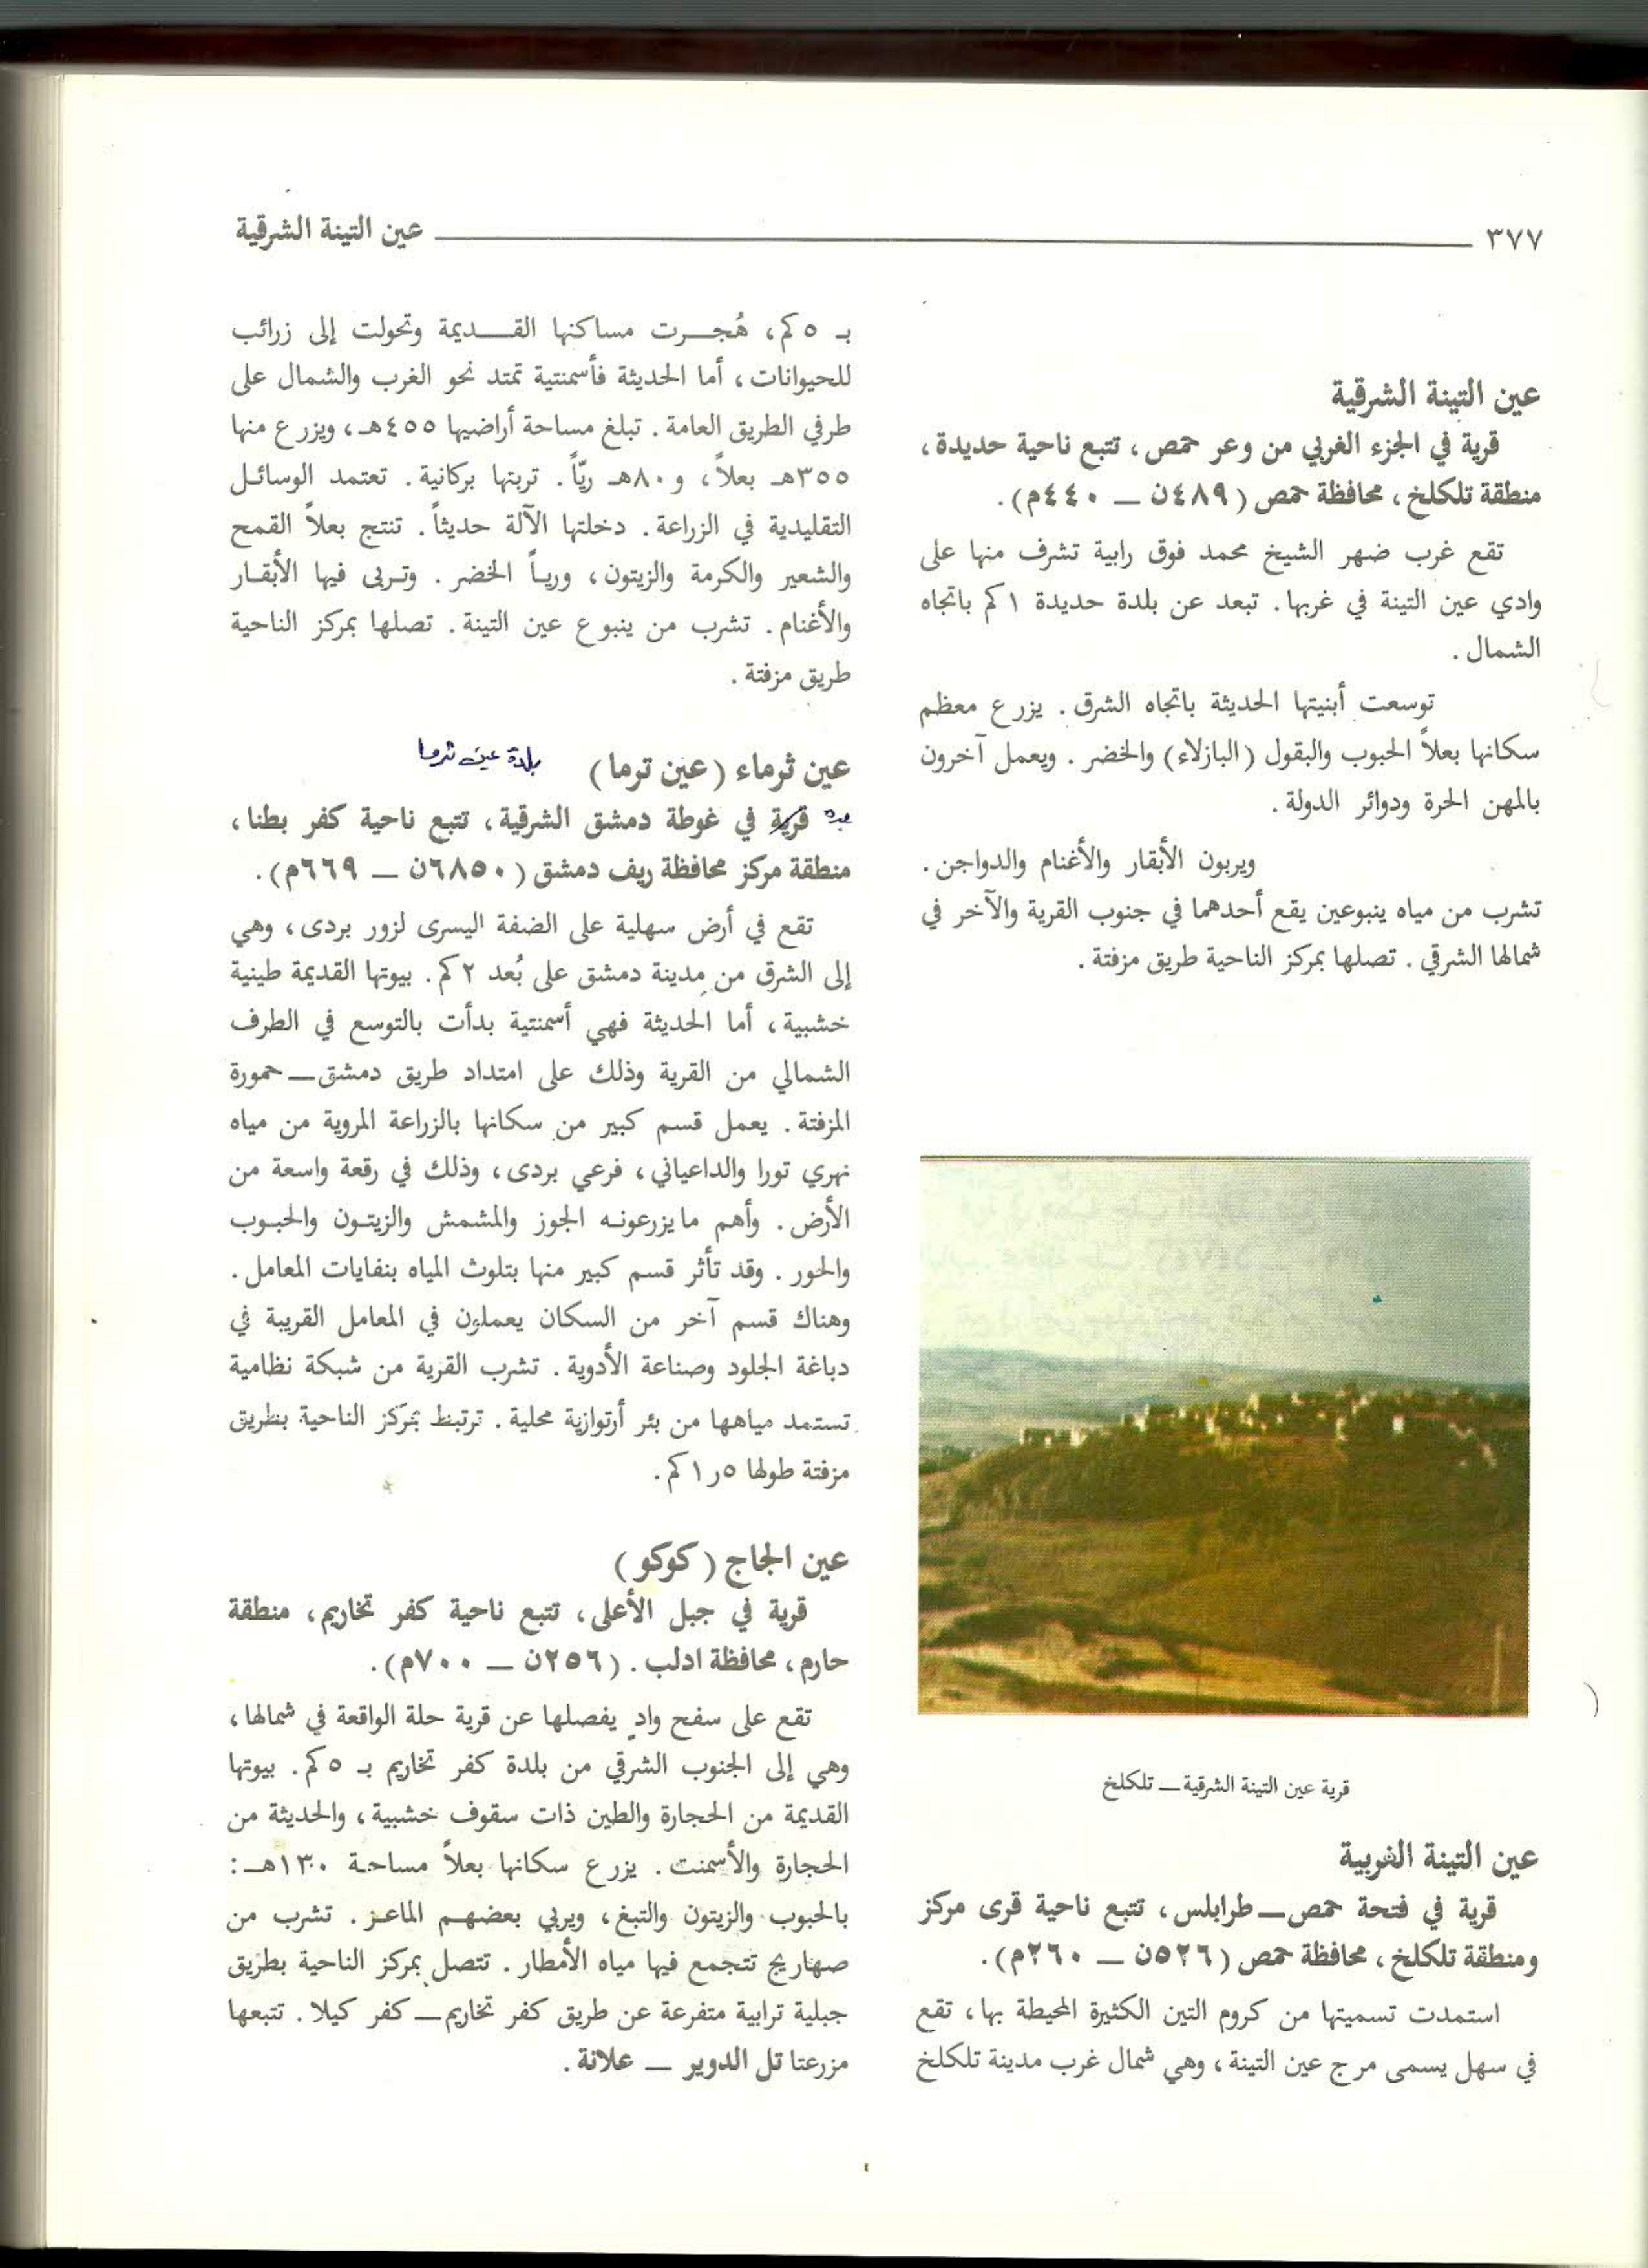 ٣٧٧ عين التينة الشرقية
عين التينة الشرقية
قرية في الجزء الغربي من وعر حمص، تتبع ناحية حديدة،
منطقة تلكلخ، محافظة حمص (٤٨٩ن ــ ٤٤٠م).
تقع غرب ضهر الشيخ محمد فوق رابية تشرف منها على
وادي عين التينة في غربها. تبعد عن بلدة حديدة ١كم باتجاه
الشمال.
توسعت أبنيتها الحديثة باتجاه الشرق. يزرع معظم
سكانها بعلاً الحبوب والبقول (البازلاء) والخضر. ويعمل آخرون
بالمهن الحرة ودوائر الدولة.
ويربون الأبقار والأغنام والدواجن.
تشرب من مياه ينبوعين يقع أحدهما في جنوب القرية والآخر في
شمالها الشرقي. تصلها بمركز الناحية طريق مزفتة.
قرية عين التينة الشرقية ــ تلكلخ
عين التينة الغربية
قرية في فتحة حمص ــ طرابلس، تتبع ناحية قرى مركز
ومنطقة تلكلخ، محافظة حمص (٥٢٦ن ــ ٢٦٠م).
استمدت تسميتها من كروم التين الكثيرة المحيطة بها، تقع
في سهل يسمى مرج عين التينة، وهي شمال غرب مدينة تلكلخ
بـ ٥كم، هُجـــرت مساكنها القـــديمة وتحولت إلى زرائب
للحيوانات، أما الحديثة فأسمنتية تمتد نحو الغرب والشمال على
طرفي الطريق العامة. تبلغ مساحة أراضيها ٤٥٥هـ، ويزرع منها
٣٥٥هـ بعلاً، و٨٠هـ ريّاً. تربتها بركانية. تعتمد الوسائل
التقليدية في الزراعة. دخلتها الآلة حديثاً. تنتج بعلاً القمح
والشعير والكرمة والزيتون، ورياً الخضر. وتربى فيها الأبقار
والأغنام. تشرب من ينبوع عين التينة. تصلها بمركز الناحية
طريق مزفتة.
عين ثرماء (عين ترما) بلدة عين ترما
قرية في غوطة دمشق الشرقية، تتبع ناحية كفر بطنا،
منطقة مركز محافظة ريف دمشق (٦٨٥٠ن ــ ٦٦٩م).
تقع في أرض سهلية على الضفة اليسرى لزور بردى، وهي
إلى الشرق من مدينة دمشق على بُعد ٢كم. بيوتها القديمة طينية
خشبية، أما الحديثة فهي أسمنتية بدأت بالتوسع في الطرف
الشمالي من القرية وذلك على امتداد طريق دمشق ــ حمورة
المزفتة. يعمل قسم كبير من سكانها بالزراعة المروية من مياه
نهري تورا والداعياني، فرعي بردى، وذلك في رقعة واسعة من
الأرض. وأهم مايزرعونه الجوز والمشمش والزيتون والحبوب
والحور. وقد تأثر قسم كبير منها بتلوث المياه بنفايات المعامل.
وهناك قسم آخر من السكان يعملون في المعامل القريبة في
دباغة الجلود وصناعة الأدوية. تشرب القرية من شبكة نظامية
تستمد مياهها من بئر أرتوازية محلية. ترتبط بمركز الناحية بطريق
مزفتة طولها ١٫٥كم.
عين الجاج (كوكو)
قرية في جبل الأعلى، تتبع ناحية كفر تخاريم، منطقة
حارم، محافظة ادلب. (٢٥٦ن ــ ٧٠٠م).
تقع على سفح وادٍ يفصلها عن قرية حلة الواقعة في شمالها،
وهي إلى الجنوب الشرقي من بلدة كفر تخاريم بـ ٥كم. بيوتها
القديمة من الحجارة والطين ذات سقوف خشبية، والحديثة من
الحجارة والأسمنت. يزرع سكانها بعلاً مساحة ١٣٠هـ:
بالحبوب والزيتون والتبغ، ويربي بعضهم الماعز. تشرب من
صهاريج تتجمع فيها مياه الأمطار. تتصل بمركز الناحية بطريق
جبلية ترابية متفرعة عن طريق كفر تخاريم ــ كفر كيلا. تتبعها
مزرعتا تل الدوير ــ علانة.